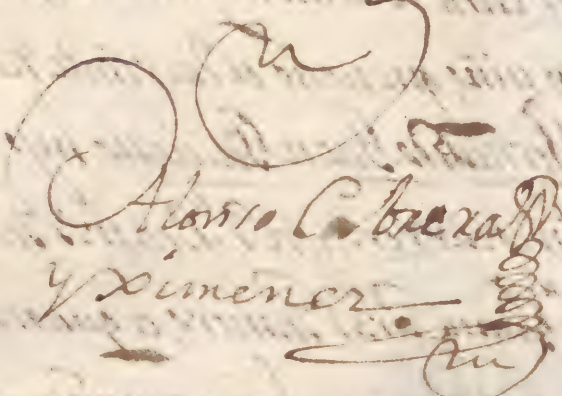 Alonso Cabrera
y Ximenez